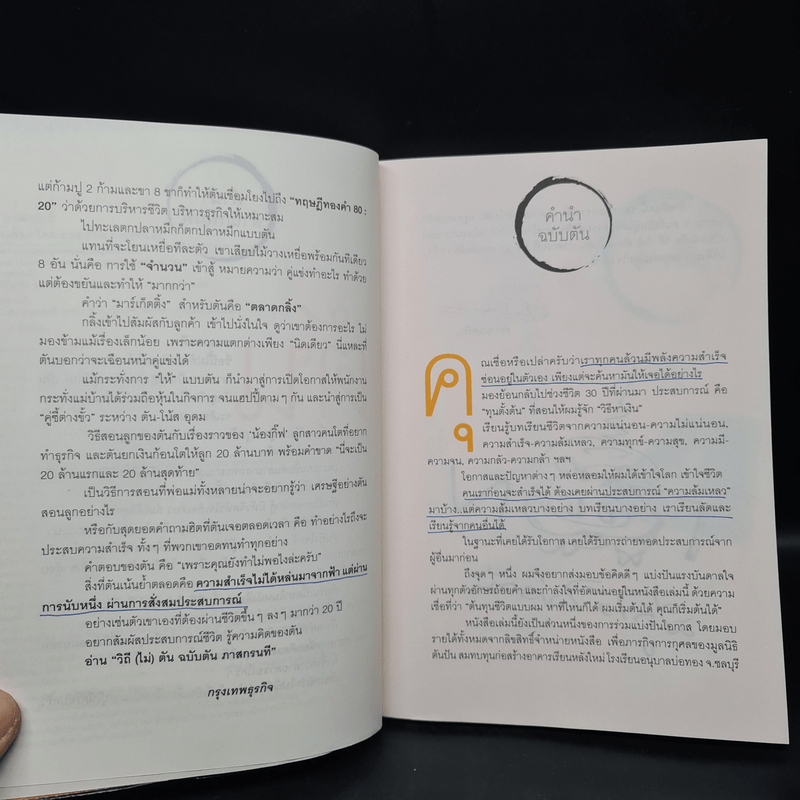 แต่ก้ามปู 2 ก้ามและขา 8 ขาก็ทำให้ตันเชื่อมโยงไปถึง "ทฤษฎีทองคำ 80 :
20" ว่าด้วยการบริหารชีวิต บริหารธุรกิจให้เหมาะสม
ไปทะเลตกปลาหมึกก็ตกปลาหมึกแบบตัน
แทนที่จะโยนเหยื่อทีละตัว เขาเสียบไม้วางเหยื่อพร้อมกันทีเดียว
8 อัน นั่นคือ การใช้ "จำนวน" เข้าสู้ หมายความว่า คู่แข่งทำอะไร ทำด้วย
แต่ต้องขยันและทำให้ "มากกว่า"
คำว่า "มาร์เก็ตติ้ง" สำหรับตันคือ "ตลาดกลิ้ง"
กลิ้งเข้าไปสัมผัสกับลูกค้า เข้าไปนั่งในใจ ดูว่าเขาต้องการอะไร ไม่
มองข้ามแม้เรื่องเล็กน้อย เพราะความแตกต่างเพียง "นิดเดียว" นี่แหละที่
ตันบอกว่าจะเฉือนหน้าคู่แข่งได้
แม้กระทั่งการ "ให้" แบบตัน ก็นำมาสู่การเปิดโอกาสให้พนักงาน
กระทั่งแม่บ้านได้ร่วมถือหุ้นในกิจการ จนแฮปปี้ตาม ๆ กัน และนำสู่การเป็น
"คู่ซี้ต่างขั้ว" ระหว่าง ตัน-โน้ส อุดม
วิธีสอนลูกของตันกับเรื่องราวของ 'น้องกิ๊ฟ' ลูกสาวคนโตที่อยาก
ทำธุรกิจ และตันยกเงินก้อนโตให้ลูก 20 ล้านบาท พร้อมคำขาด "นี่จะเป็น
20 ล้านแรกและ 20 ล้านสุดท้าย"
เป็นวิธีการสอนที่พ่อแม่ทั้งหลายน่าจะอยากรู้ว่า เศรษฐีอย่างตัน
สอนลูกอย่างไร
หรือกับสุดยอดคำถามฮิตที่ตันเจอตลอดเวลา คือ ทำอย่างไรถึงจะ
ประสบความสำเร็จ ทั้งๆ ที่พวกเขาอดทนทำทุกอย่าง
คำตอบของตัน คือ "เพราะคุณยังทำไม่พอไงล่ะครับ"
สิ่งที่ตันเน้นย้ำตลอดคือ ความสำเร็จไม่ได้หล่นมาจากฟ้า แต่ผ่าน
การนับหนึ่ง ผ่านการสั่งสมประสบการณ์
อย่างเช่นตัวเขาเองที่ต้องผ่านชีวิตขึ้นๆ ลงๆ มากว่า 20 ปี
อยากสัมผัสประสบการณ์ชีวิต รู้ความคิดของตัน
อ่าน "วิถี (ไม่) ตัน ฉบับตัน ภาสกรนที"
กรุงเทพธุรกิจ
คำนำ
ฉบับตัน
คุณเชื่อหรือเปล่าครับว่าเราทุกคนล้วนมีพลังความสำเร็จ
ซ่อนอยู่ในตัวเอง เพียงแต่จะค้นหามันให้เจอได้อย่างไร
มองย้อนกลับไปช่วงชีวิต 30 ปีที่ผ่านมา ประสบการณ์ คือ
"ทุนตั้งต้น" ที่สอนให้ผมรู้จัก "วิธีหาเงิน"
เรียนรู้บทเรียนชีวิตจากความแน่นอน-ความไม่แน่นอน,
ความสำเร็จ-ความล้มเหลว, ความทุกข์-ความสุข, ความมี-
ความจน, ความกลัว-ความกล้า ฯลฯ
โอกาสและปัญหาต่างๆ หล่อหลอมให้ผมได้เข้าใจโลก เข้าใจชีวิต
คนเราก่อนจะสำเร็จได้ ต้องเคยผ่านประสบการณ์ "ความล้มเหลว"
มาบ้าง..แต่ความล้มเหลวบางอย่าง บทเรียนบางอย่าง เราเรียนลัดและ
เรียนรู้จากคนอื่นได้
ในฐานะที่เคยได้รับโอกาส เคยได้รับการถ่ายทอดประสบการณ์จาก
ผู้อื่นมาก่อน
ถึงจุดๆ หนึ่ง ผมจึงอยากส่งมอบข้อคิดดีๆ แบ่งปันแรงบันดาลใจ
ผ่านทุกตัวอักษรถ้อยคำ และกำลังใจที่อัดแน่นอยู่ในหนังสือเล่มนี้ ด้วยความ
เชื่อที่ว่า "ต้นทุนชีวิตแบบผม หาที่ไหนก็ได้ ผมเริ่มต้นได้ คุณก็เริ่มต้นได้"
หนังสือเล่มนี้ยังเป็นส่วนหนึ่งของการร่วมแบ่งปันโอกาส โดยมอบ
รายได้ทั้งหมดจากลิขสิทธิ์จำหน่ายหนังสือ เพื่อภารกิจการกุศลของมูลนิธิ
ตันปัน สมทบทุนก่อสร้างอาคารเรียนหลังใหม่ โรงเรียนอนุบาลบ่อทอง จ.ชลบุรี